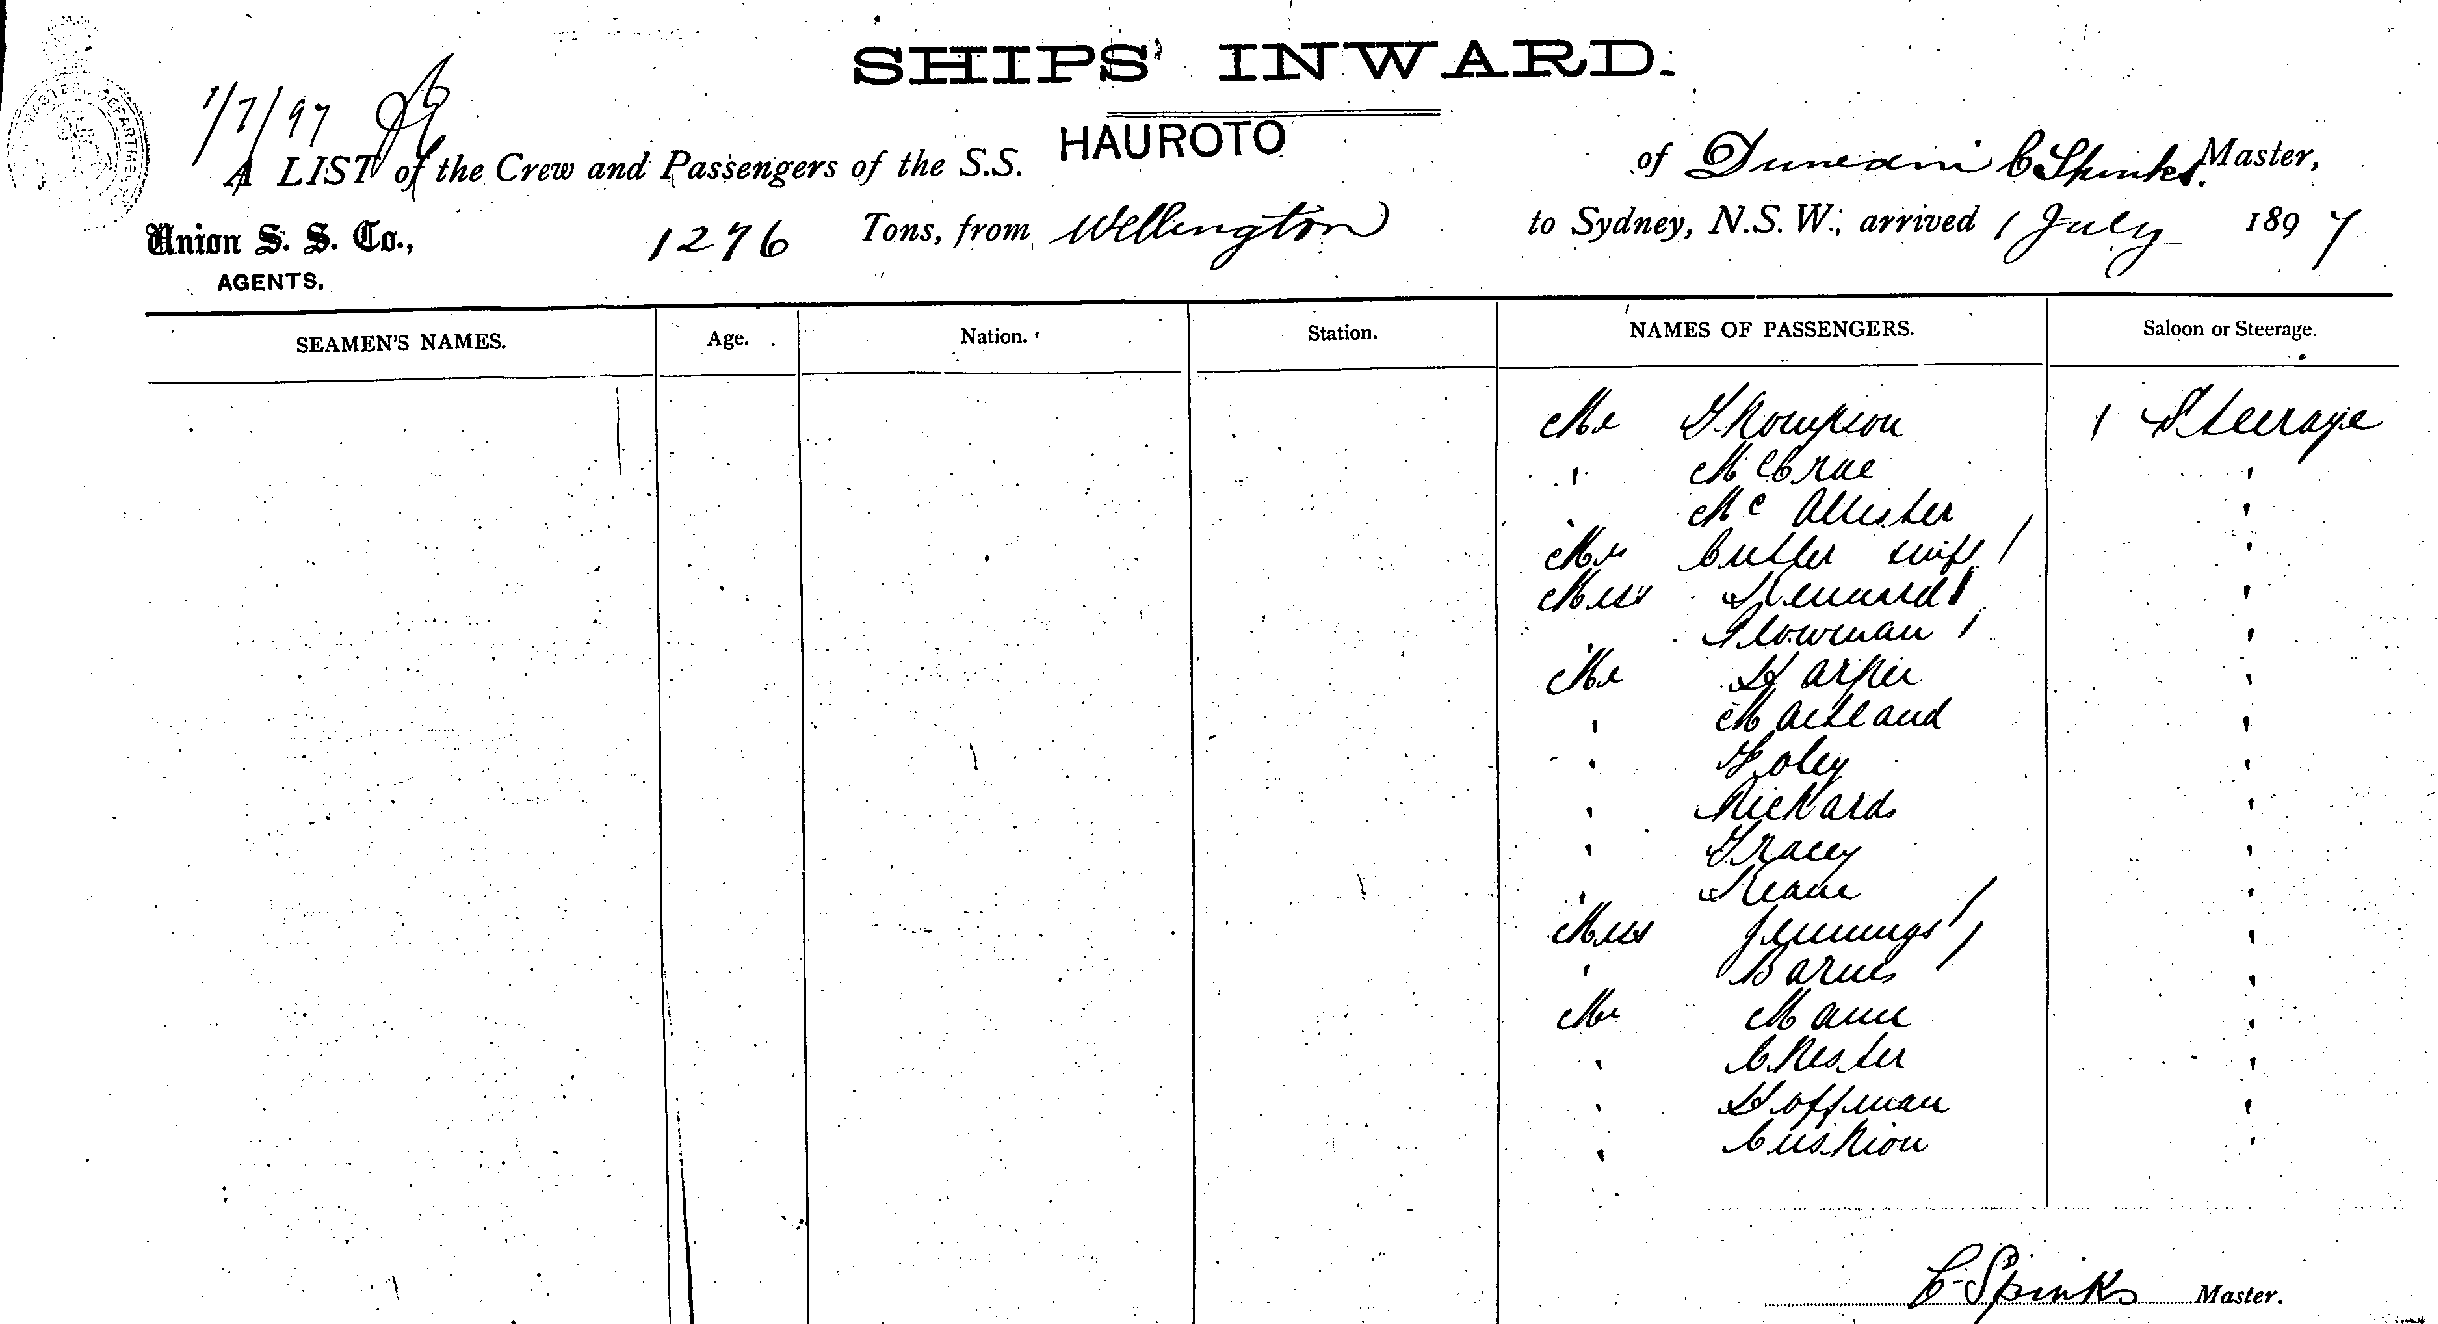 SHIPS' INWARD.
1/7/97
HAUROTO
A LIST of the Crew and Passengers of the S.S. of Dunedin C Spinks. Master,
Union S. S. Co., 1276 Tons, from Wellington to Sydney, N.S.W., arrived 1 July 1897
AGENTS.
SEAMEN'S NAMES. Age. Nation. Station. NAMES OF PASSENGERS. Saloon or Steerage.
Mr Thompson 1 Steerage
" McCrae "
" Mc Allister "
Mr Butler "
Miss Kennard "
" Plowman "
Mr Harper "
" Maitland "
" Foley "
" Rickards "
" Tracey "
" Keane "
Miss Jennings "
" Barnes "
Mr Mann "
" Chester "
" Hoffman "
" Cushion "
C Spinks Master.